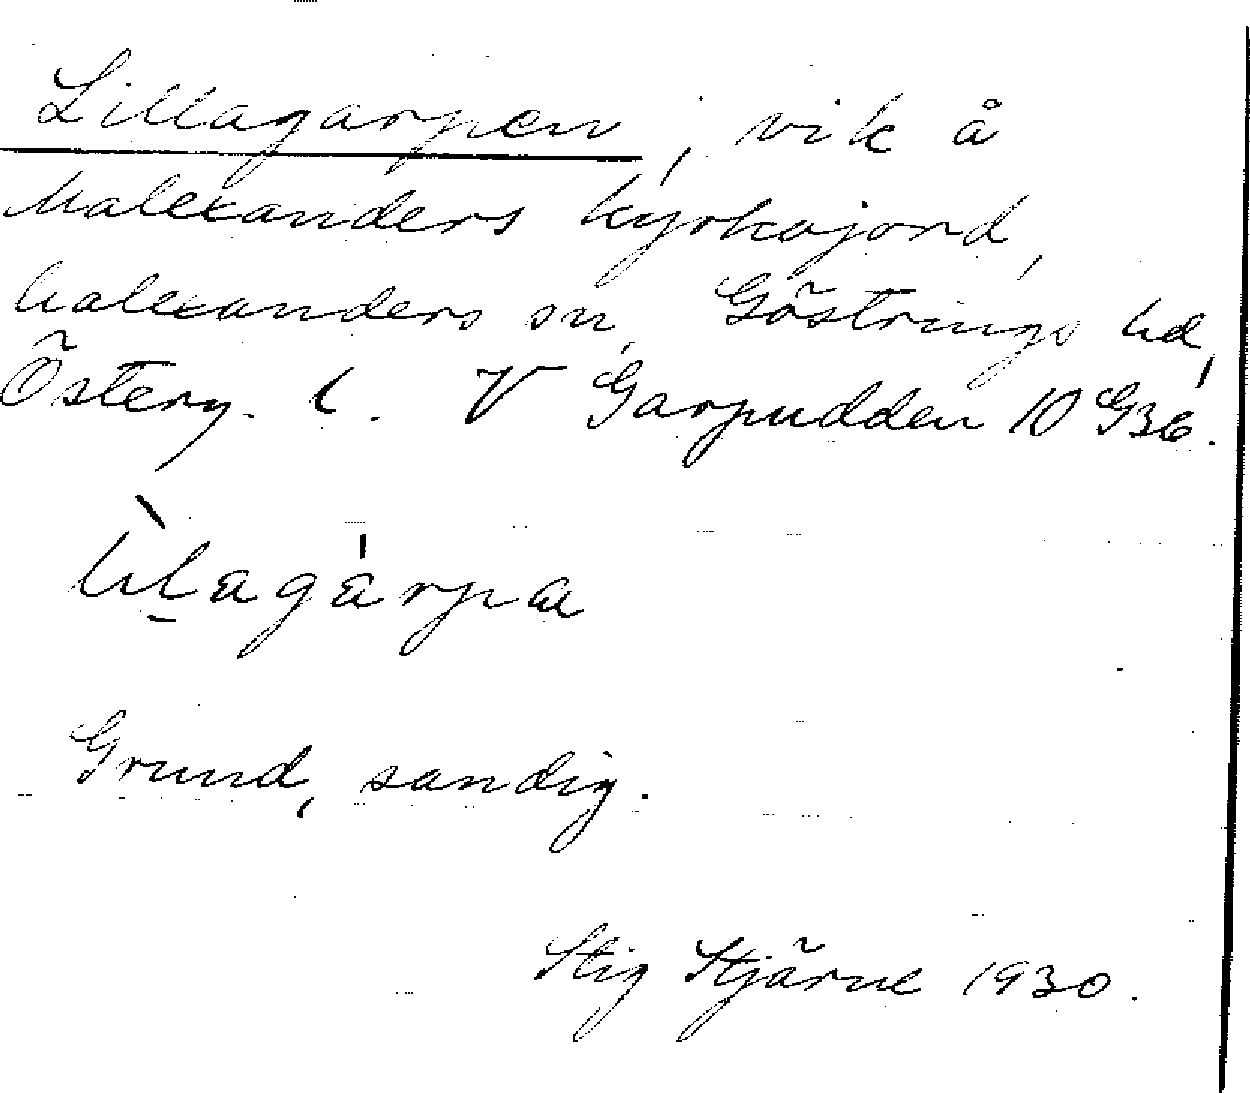 Lillagarpen, vik å
Malexanders kyrkojord,
Malexanders sn, Göstrings hd,
Österg. l. V Garpudden 10 G36.
lìlagárpa
Grund, sandig.
Stig Stjärne 1930.